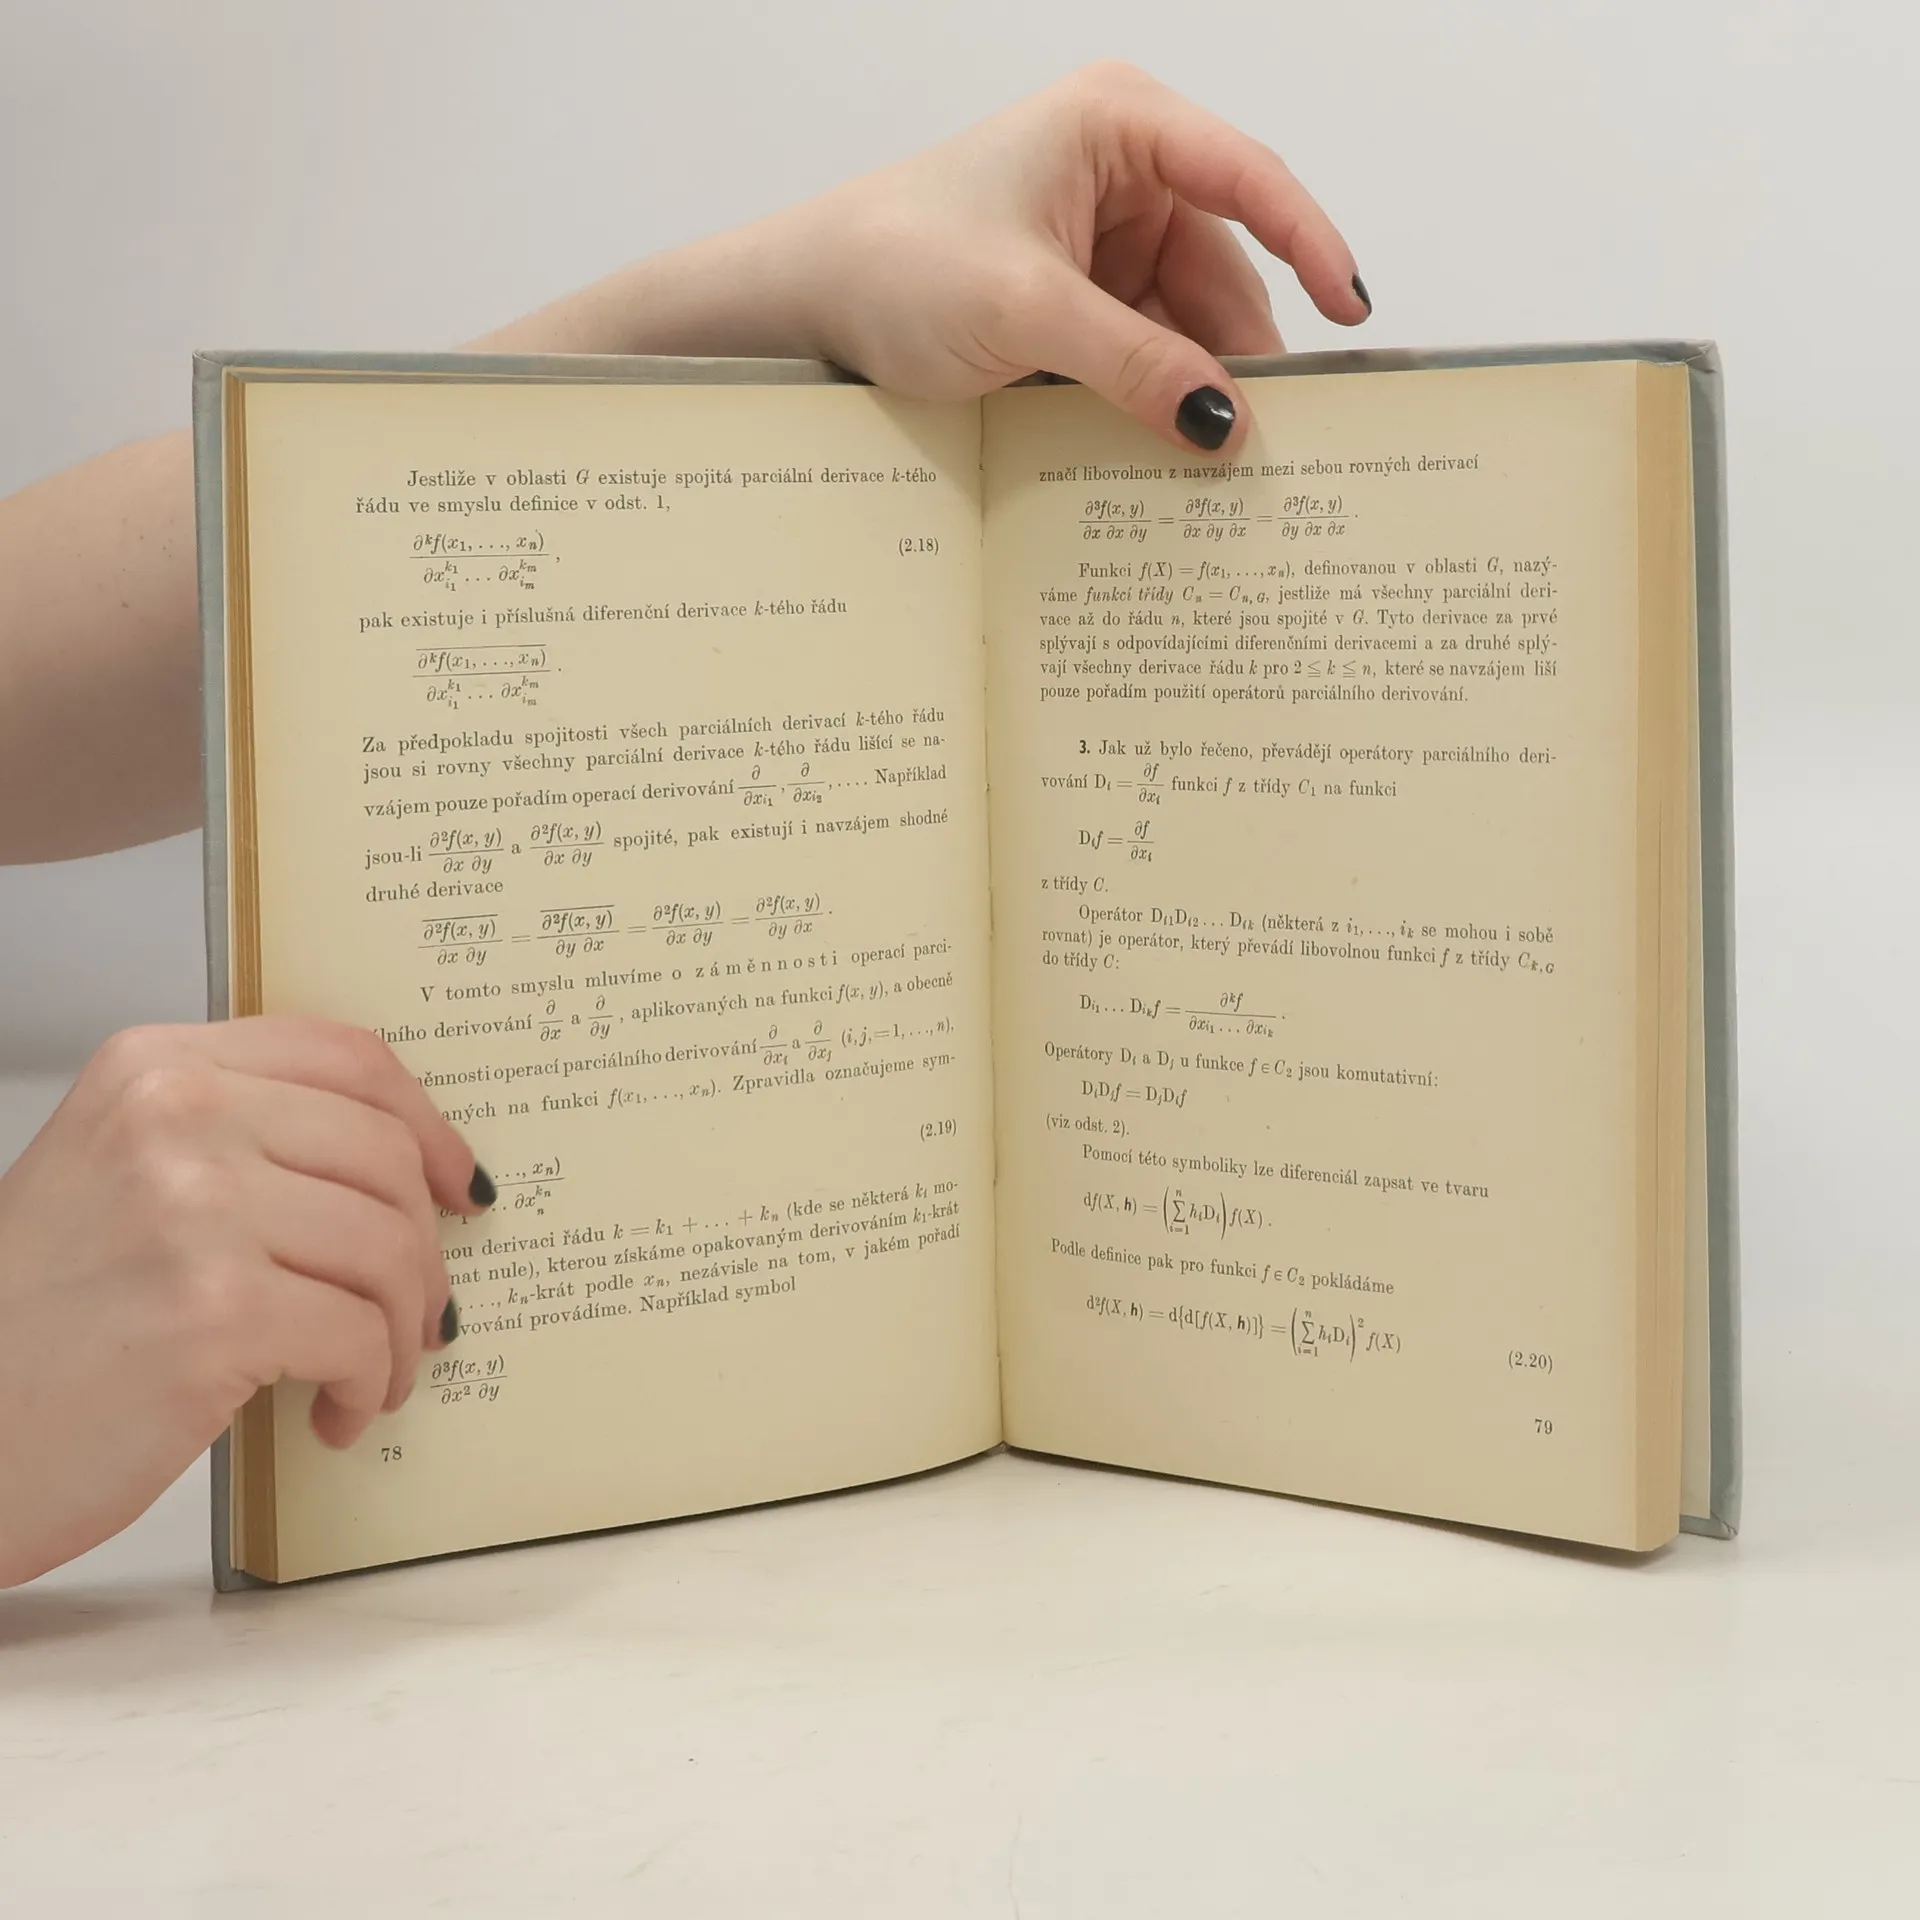 Jestliže v oblasti G existuje spojitá parciální derivace k-tého
řádu ve smyslu definice v odst. 1,
∂ᵏf(x₁, . . ., xₙ) / ∂x_{i₁}^{k₁} . . . ∂x_{iₘ}^{kₘ} , (2.18)
pak existuje i příslušná diferenční derivace k-tého řádu
\overline{∂ᵏf(x₁, . . ., xₙ)} / ∂x_{i₁}^{k₁} . . . ∂x_{iₘ}^{kₘ} .
Za předpokladu spojitosti všech parciálních derivací k-tého řádu
jsou si rovny všechny parciální derivace k-tého řádu lišící se na-
vzájem pouze pořadím operací derivování ∂/∂x_{i₁} , ∂/∂x_{i₂} , . . . . Například
jsou-li ∂²f(x, y)/∂x ∂y a ∂²f(x, y)/∂x ∂y spojité, pak existují i navzájem shodné
druhé derivace
\overline{∂²f(x, y)}/∂x ∂y = \overline{∂²f(x, y)}/∂y ∂x = ∂²f(x, y)/∂x ∂y = ∂²f(x, y)/∂y ∂x .
V tomto smyslu mluvíme o záměnnosti operací parci-
lního derivování ∂/∂x a ∂/∂y , aplikovaných na funkci f(x, y), a obecně
ěnnosti operací parciálního derivování ∂/∂xᵢ a ∂/∂xⱼ (i, j, = 1, . . ., n),
aných na funkci f(x₁, . . ., xₙ). Zpravidla označujeme sym-
(2.19)
. . ., xₙ) / ∂x₁ . . ∂xₙ^{kₙ}
nou derivaci řádu k = k₁ + . . . + kₙ (kde se některá kᵢ mo-
nat nule), kterou získáme opakovaným derivováním k₁-krát
, . . ., kₙ-krát podle xₙ, nezávisle na tom, v jakém pořadí
vování provádíme. Například symbol
∂³f(x, y)/∂x² ∂y
78
značí libovolnou z navzájem mezi sebou rovných derivací
∂³f(x, y)/∂x ∂x ∂y = ∂³f(x, y)/∂x ∂y ∂x = ∂³f(x, y)/∂y ∂x ∂x .
Funkci f(X) = f(x₁, . . ., xₙ), definovanou v oblasti G, nazý-
váme funkcí třídy Cₙ = C_{n, G}, jestliže má všechny parciální deri-
vace až do řádu n, které jsou spojité v G. Tyto derivace za prvé
splývají s odpovídajícími diferenčními derivacemi a za druhé splý-
vají všechny derivace řádu k pro 2 ≦ k ≦ n, které se navzájem liší
pouze pořadím použití operátorů parciálního derivování.
3. Jak už bylo řečeno, převádějí operátory parciálního deri-
vování Dᵢ = ∂f/∂xᵢ funkci f z třídy C₁ na funkci
Dᵢf = ∂f/∂xᵢ
z třídy C.
Operátor D_{i1}D_{i2} . . . D_{ik} (některá z i₁, . . ., iₖ se mohou i sobě
rovnat) je operátor, který převádí libovolnou funkci f z třídy C_{k, G}
do třídy C:
D_{i₁} . . . D_{iₖ}f = ∂ᵏf / ∂x_{i₁} . . . ∂x_{iₖ} .
Operátory Dᵢ a Dⱼ u funkce f ∈ C₂ jsou komutativní:
DᵢDⱼf = DⱼDᵢf
(viz odst. 2).
Pomocí této symboliky lze diferenciál zapsat ve tvaru
df(X, h) = (∑_{i=1}^{n} hᵢDᵢ) f(X) .
Podle definice pak pro funkci f ∈ C₂ pokládáme
d²f(X, h) = d{d[f(X, h)]} = (∑_{i=1}^{n} hᵢDᵢ)² f(X)
(2.20)
79